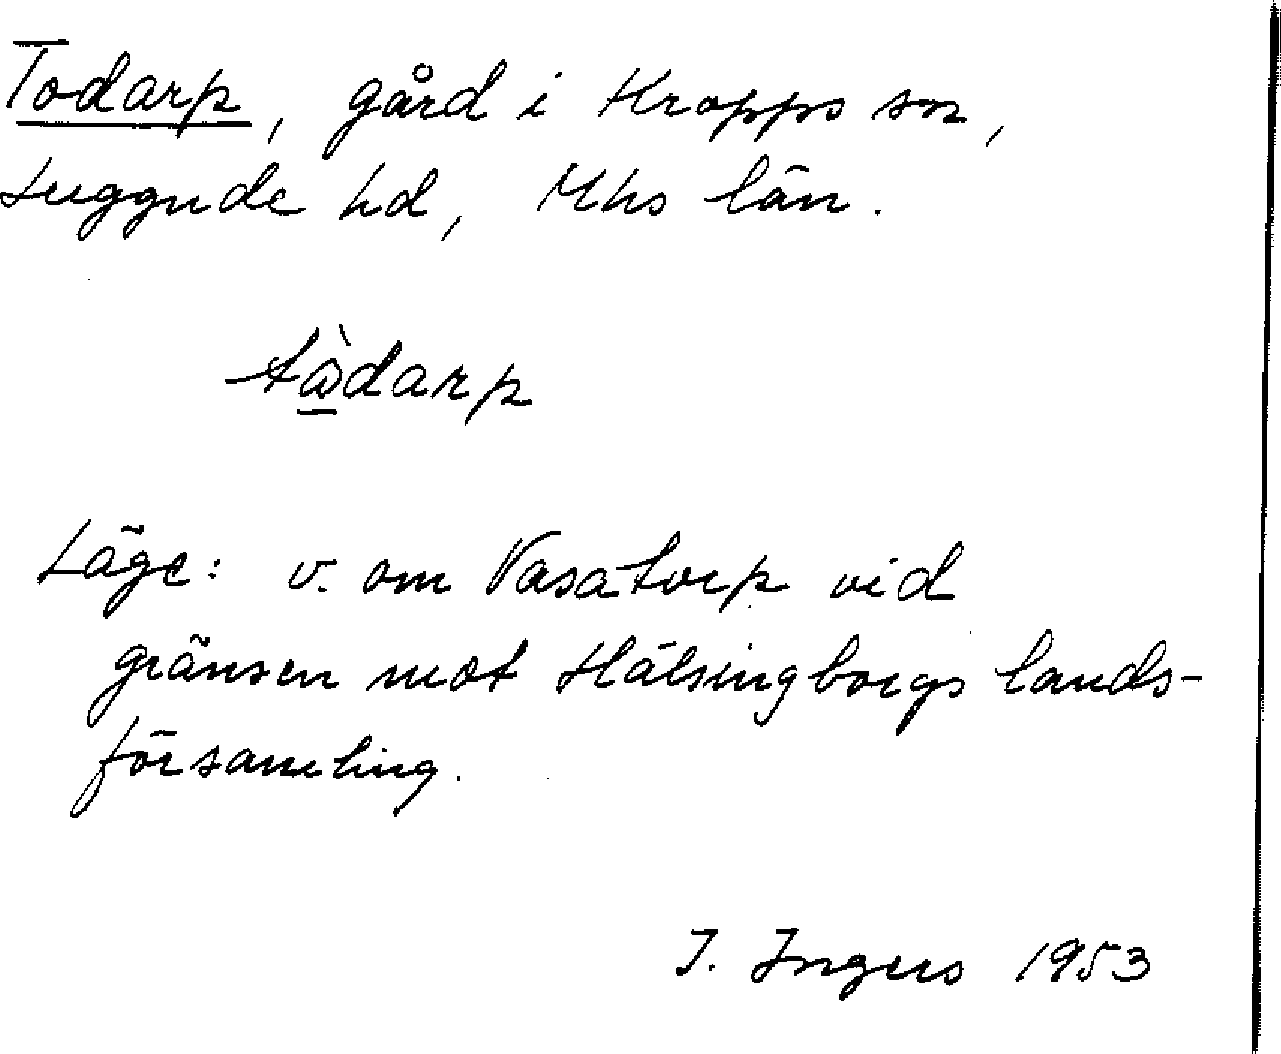 Todarp, gård i Kropps sn,
Luggude hd, Mhs län.
tòdarp
Läge: v. om Vasatorp vid
gränsen mot Hälsingborgs lands-
församling.
I. Ingers 1953